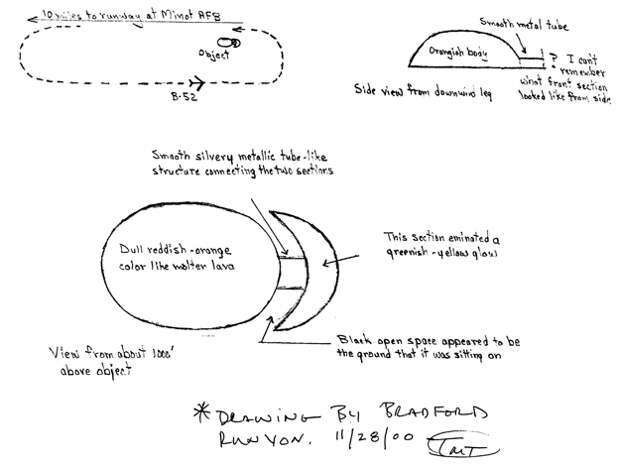 10 miles to runway at Minot AFB
Object
B-52
Smooth metal tube
Orangish body
? I can't
remember
what front section
looked like from side
Side view from downwind leg
Smooth silvery metallic tube-like
structure connecting the two sections
Dull reddish-orange
color like molten lava
This section eminated a
greenish-yellow glow
Black open space appeared to be
the ground that it was sitting on
View from about 1000'
above object
*DRAWING BY BRADFORD
RUNYON. 11/28/00